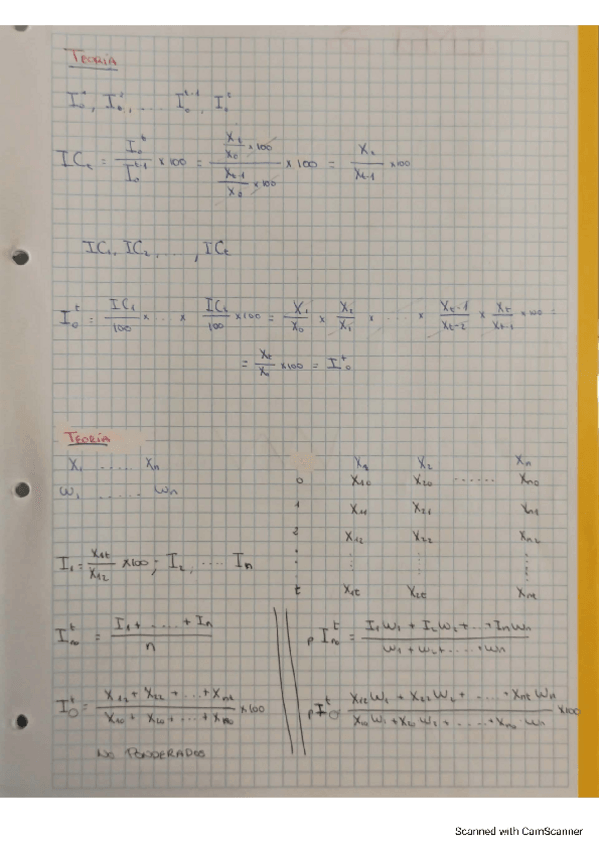 TEORÍA
I₀¹, I₀², .... I₀ᵗ⁻¹, I₀ᵗ
ICₜ = I₀ᵗ / I₀ᵗ⁻¹ × 100 = (Xₜ/X₀ × 100) / (Xₜ₋₁/X₀ × 100) × 100 = Xₜ / Xₜ₋₁ × 100
IC₁, IC₂, ...., ICₜ
I₀ᵗ = IC₁/100 × ... × ICₜ/100 × 100 = X₁/X₀ × X₂/X₁ × .... × Xₜ₋₁/Xₜ₋₂ × Xₜ/Xₜ₋₁ × 100 =
= Xₜ/X₀ × 100 = I₀ᵗ
TEORÍA
X₁ ..... Xn
ω₁ ...... ωn
X₁ X₂ Xn
0 X₁₀ X₂₀ ...... Xn₀
1 X₁₁ X₂₁ Xn₁
2 X₁₂ X₂₂ Xn₂
t X₁ₜ X₂ₜ Xnₜ
I₁ = X₁ₜ/X₁₂ × 100; I₂, .... In
Iᵗ = (I₁ + ..... + In) / n
p Iᵗ = (I₁ω₁ + I₂ω₂ + ... + Inωn) / (ω₁ + ω₂ + .... + ωn)
I₀ᵗ = (X₁₂ + X₂₂ + ... + Xnₜ) / (X₁₀ + X₂₀ + ... + Xn₀) × 100
p I₀ᵗ = (X₁₂ω₁ + X₂₂ω₂ + .... + Xnₜωn) / (X₁₀ω₁ + X₂₀ω₂ + ..... + Xn₀·ωn) × 100
NO PONDERADOS
Scanned with CamScanner